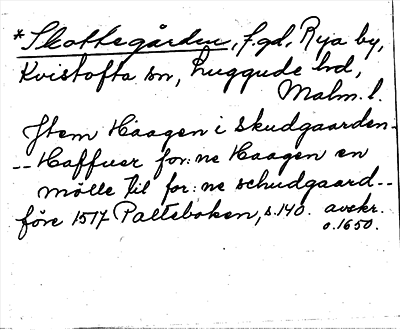 *Skottegården, f.gd, Rya by,
Kvistofta sn, Luggude hd,
Malm. l.
Jtem Haagen i Skudgaarden-
-- Haffuer for:ne Haagen en
mölle til for:ne schudgaard--
före 1517 Palteboken, s.140. avskr.
o.1650.